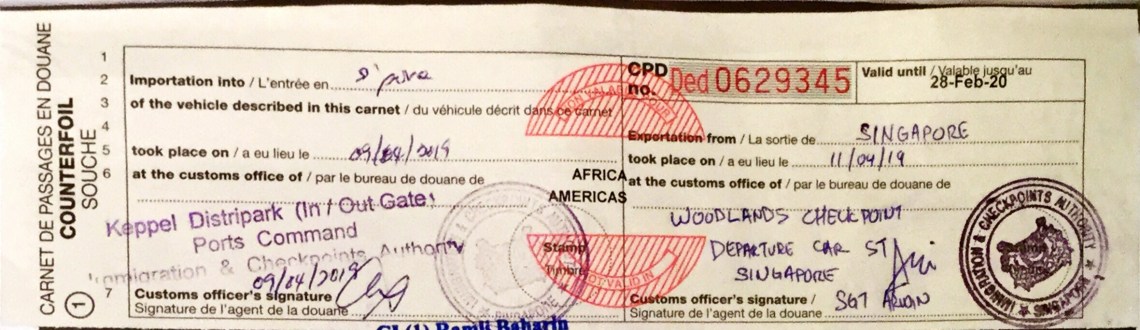 CARNET DE PASSAGES EN DOUANE
COUNTERFOIL
SOUCHE
1
1
2 Importation into / L'entrée en S'pore
3 of the vehicle described in this carnet / du véhicule décrit dans ce carnet
4
5 took place on / a eu lieu le 09/04/2019
6 at the customs office of / par le bureau de douane de
Keppel Distripark (In / Out Gate)
Ports Command
Immigration & Checkpoints Authority
09/04/2019
7 Customs officer's signature
Signature de l'agent de la douane
AFRICA
AMERICAS
Stamp
Timbre
NOT VALID IN
CPD no. Ded 0629345
Valid until / Valable jusqu'au
28-Feb-20
Exportation from / La sortie de SINGAPORE
took place on / a eu lieu le 11/04/19
at the customs office of / par le bureau de douane de
WOODLANDS CHECKPOINT
DEPARTURE CAR
SINGAPORE
Customs officer's signature / SGT
Signature de l'agent de la douane
IMMIGRATION & CHECKPOINTS AUTHORITY
SINGAPORE